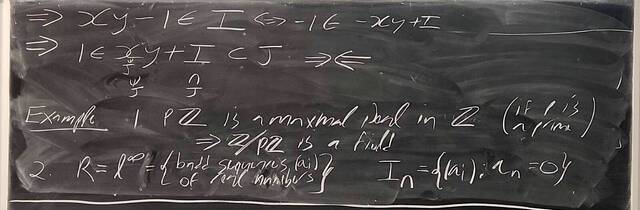 ⇒ xy-1 ∈ I ⇔ -1 ∈ -xy+I
⇒ 1 ∈ xy + I ⊂ J ⇒⇐
Example 1 pℤ is a maximal ideal in ℤ (if p is a prime)
⇒ ℤ/pℤ is a field
2. R = l^∞ = {bndd sequences (a_i) of real numbers} I_n = {(a_i): a_n = 0}